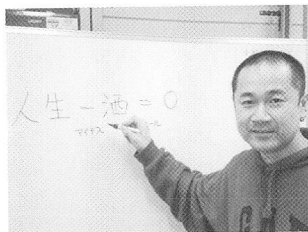 人生－酒＝0
マイナス